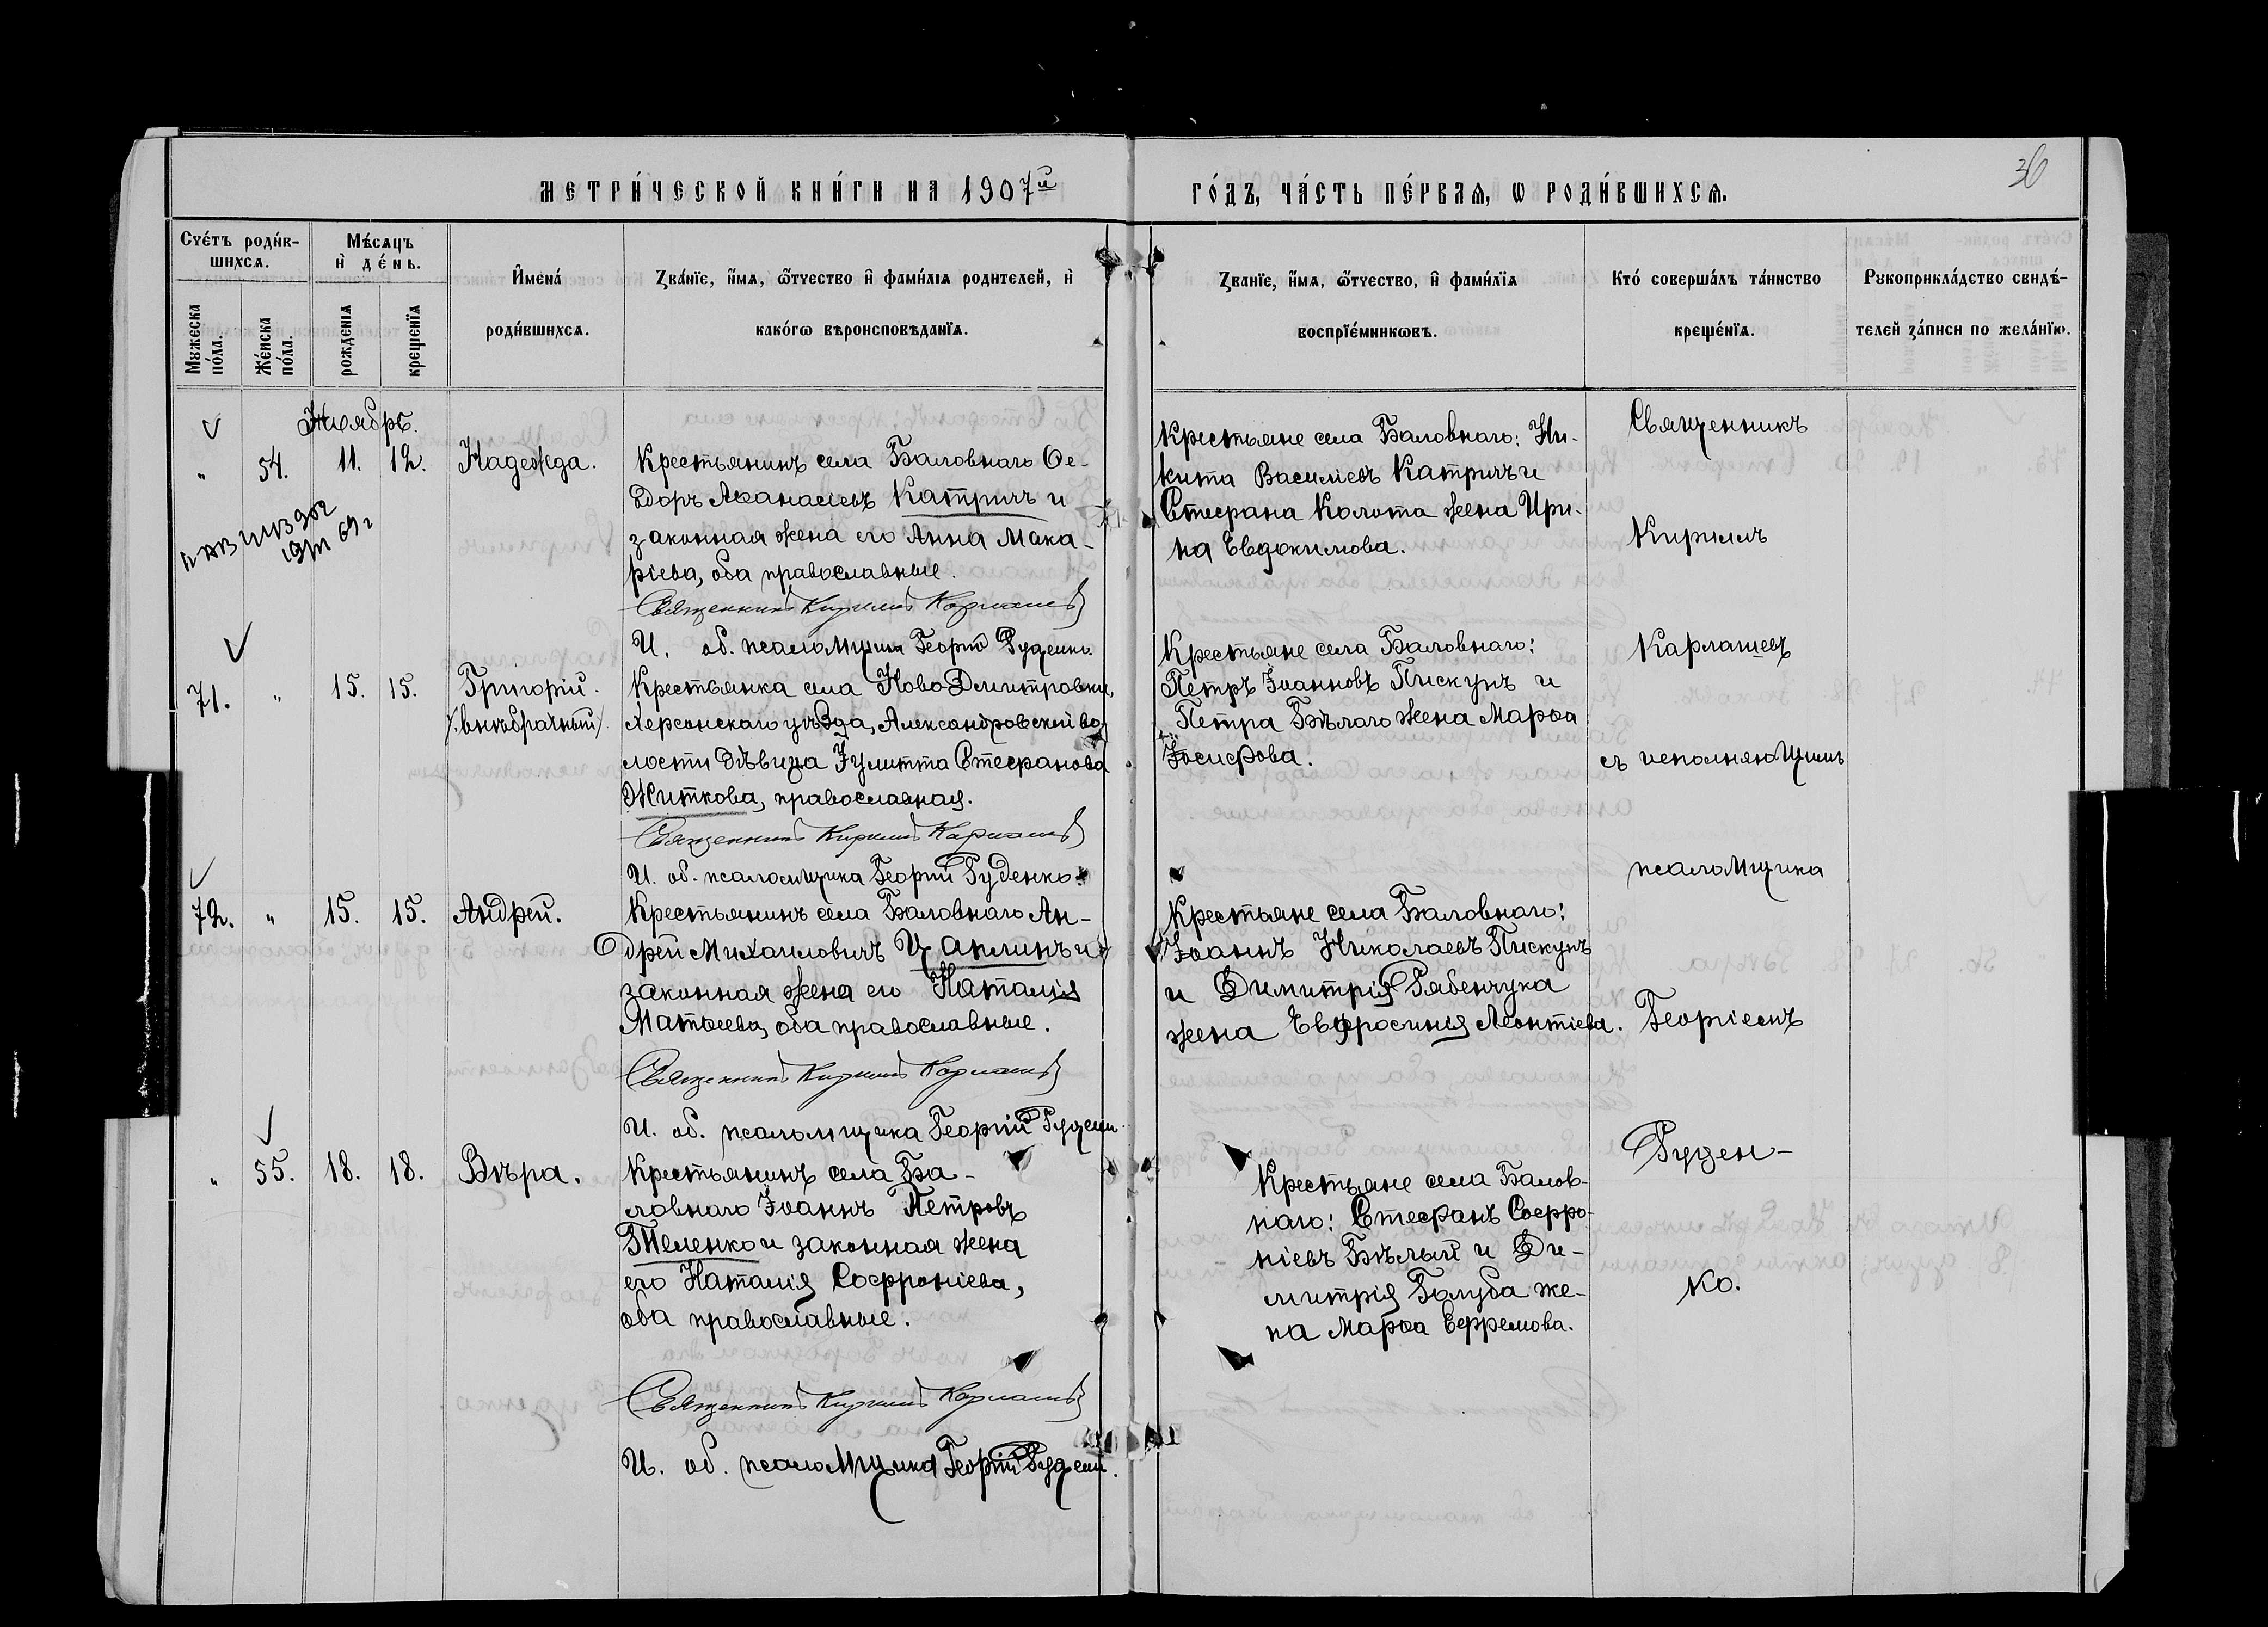 МЕТРИ́ЧЕСКОЙ КНИ́ГИ НА 1907й
ГО́ДЪ, ЧА́СТЬ ПЕ́РВАѦ, Ѡ РОДИ́ВШИХСѦ.
36
Сче́тъ роди́в-
шихсѧ.
Мѣ́сѧцъ
и҆ де́нь.
Му́жеска
по́ла.
Же́нска
по́ла.
рожденїѧ
крещенїѧ
И҆мена́
роди́вшихсѧ.
Зва́нїе, и҆́мѧ, ѻ҆́тчество и҆ фами́лїѧ родителей, и҆
како́гѡ вѣроисповѣданїѧ.
Званїе, и҆́мѧ, ѻ҆́тчество, и҆ фами́лїѧ
воспрїе́мникѡвъ.
Кто́ соверша́лъ та́инство
креще́нїѧ.
Рукоприкла́дство свидѣ́-
телей за́писи по жела́нїю.
Ноябрь.
" 54. 11. 12. Надежда.
Крестьянинъ села Баловнаго Ѳе-
доръ Аѳанасіевъ Катричъ и
законная жена его Анна Мака-
ріева, оба православные.
Священникъ Кириллъ Карлашевъ
И. об. псаломщика Георгій Руденко.
Крестьяне села Баловнаго: Ни-
кита Василіевъ Катричъ и
Стефана Колота жена Ири-
на Евдокимова.
71. " 15. 15. Григорій.
/внѣбрачный/
Крестьянка села Ново-Димитровки,
Херсонскаго уѣзда, Александровской во
лости дѣвица Іулитта Стефанова
Житкова, православная.
Священникъ Кириллъ Карлашевъ
И. об. псаломщика Георгій Руденко.
Крестьяне села Баловнаго:
Петръ Іоанновъ Пискунъ и
Петра Бѣлаго жена Марѳа
Іосифова.
72. " 15. 15. Андрей.
Крестьянинъ села Баловнаго Ан-
дрей Михаиловичъ Цаплинъ и
законная жена его Наталія
Матѳеева, оба православные.
Священникъ Кириллъ Карлашевъ
И. об. псаломщика Георгій Руденко
Крестьяне села Баловнаго:
Іоаннъ Николаевъ Пискунъ
и Димитрія Рябенчука
жена Евфросинія Леонтіева.
" 55. 18. 18. Вѣра.
Крестьянинъ села Ба-
ловнаго Іоаннъ Петровъ
Теленко и законная жена
его Наталія Софроніева,
оба православные.
Священникъ Кириллъ Карлашевъ
И. об. псаломщика Георгій Руденко.
Крестьяне села Балов-
наго: Стефанъ Софро-
ніевъ Бѣлый и Ди-
митрія Голуба же-
на Марѳа Ефремова.
Священникъ
Кириллъ
Карлашевъ
съ исполняющимъ
псаломщика
Георгіемъ
Руден-
ко.